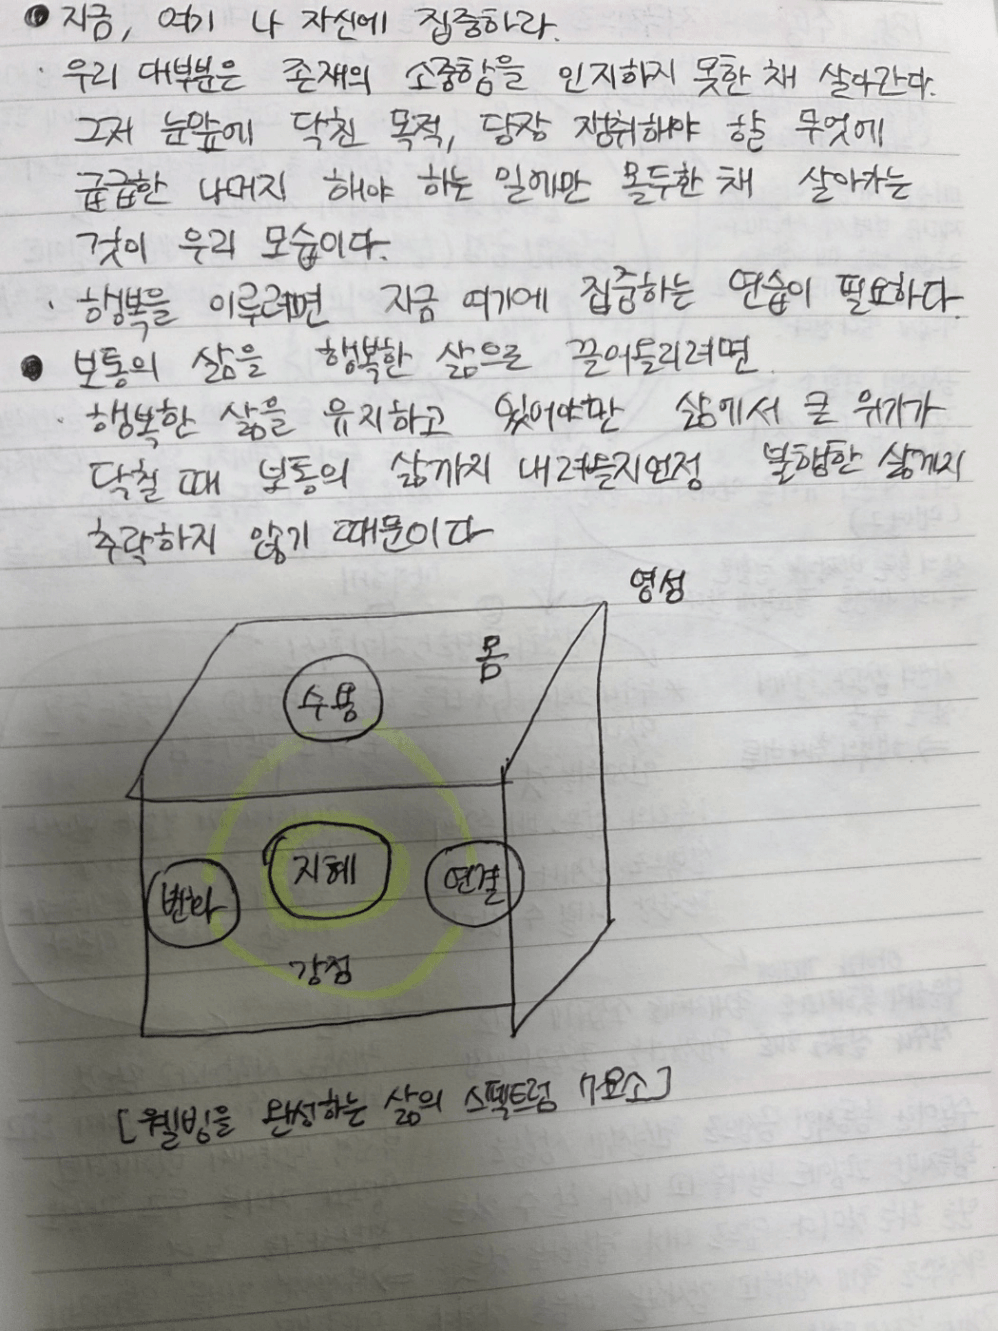 ● 지금, 여기 나 자신에 집중하라.
· 우리 대부분은 존재의 소중함을 인지하지 못한 채 살아간다.
그저 눈앞에 닥친 목적, 당장 쟁취해야 할 무엇에
급급한 나머지 해야 하는 일에만 몰두한 채 살아가는
것이 우리 모습이다.
· 행복을 이루려면 지금 여기에 집중하는 연습이 필요하다.
● 보통의 삶을 행복한 삶으로 끌어올리려면
· 행복한 삶을 유지하고 있어야만 삶에서 큰 위기가
닥칠 때 보통의 삶까지 내려올지언정 불행한 삶까지
추락하지 않기 때문이다
영성
몸
수용
지혜
변화
연결
감정
[웰빙을 완성하는 삶의 스펙트럼 7요소]